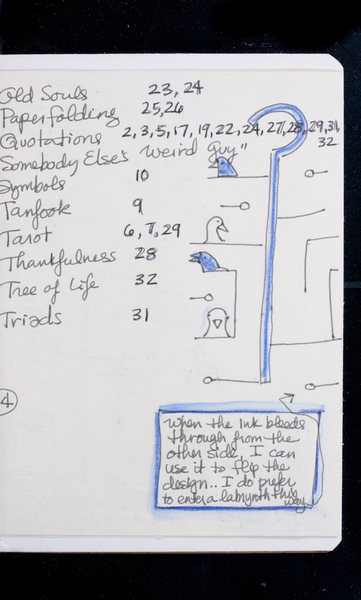 Old Souls 23, 24
Paperfolding 25, 26
Quotations 2, 3, 5, 17, 19, 22, 24, 27, 28, 29, 31, 32
Somebody Else's "Weird Guy"
Symbols 10
Tanfook 9
Tarot 6, 7, 29
Thankfulness 28
Tree of Life 32
Triads 31
4
When the ink bleeds
through from the
other side, I can
use it to flip the
design.. I do prefer
to enter a labyrinth this
way